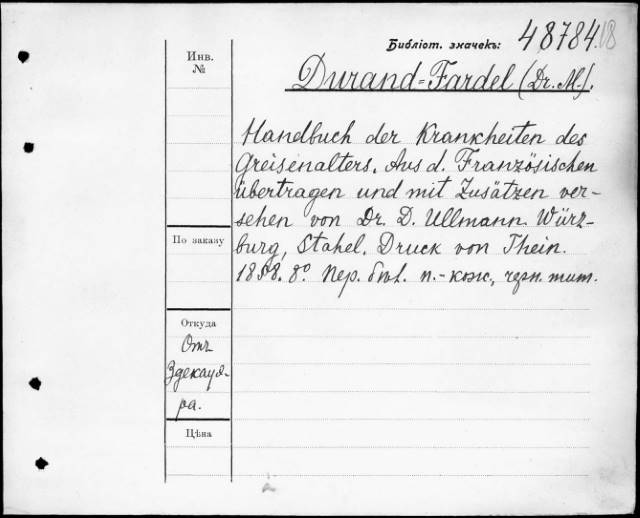 Библіот. значекъ: 48784.18
Инв.
№
Durand=Fardel (Dr. M.).
Handbuch der Krankheiten des
Greisenalters. Aus d. Französischen
übertragen und mit Zusätzen ver-
sehen von Dr. D. Ullmann. Würz-
По заказу
burg, Stahel. Druck von Thein.
1858. 8°. Пер. п.-кож, черн. тит.
Откуда
Отъ
Здекауе-
ра.
Цѣна